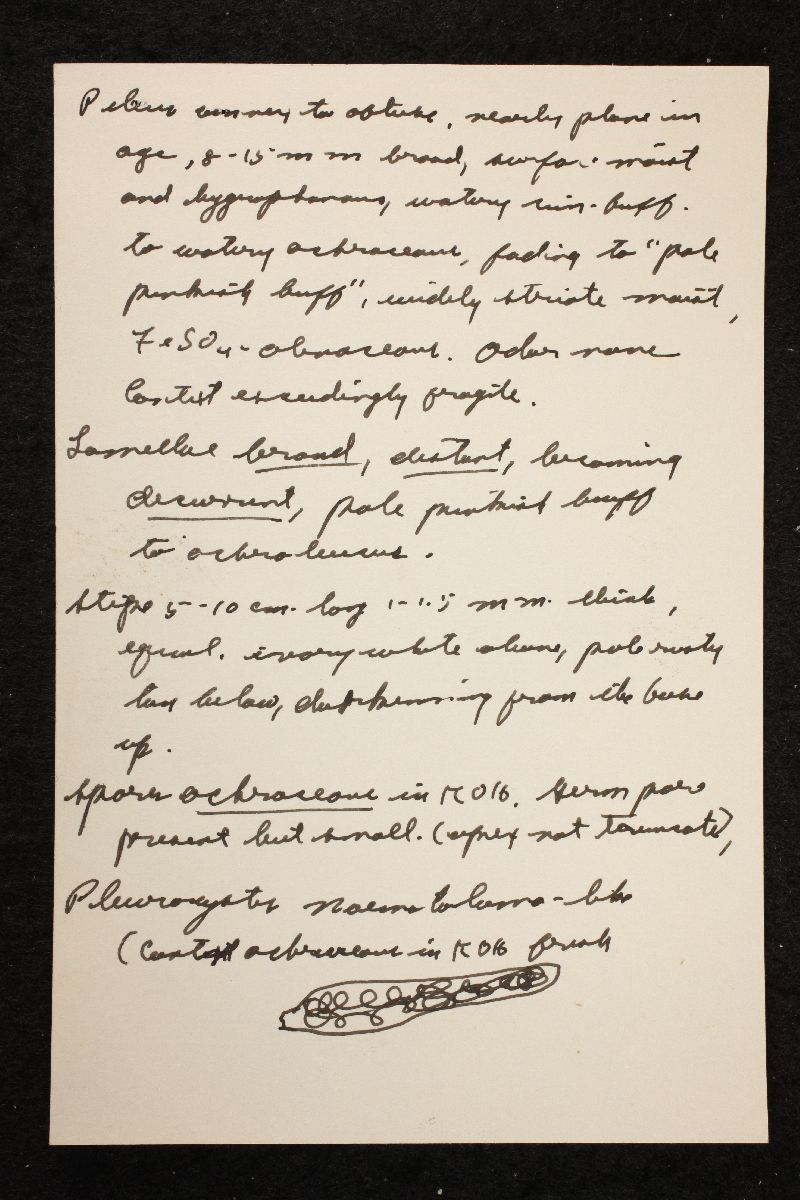 Pileus convex to obtuse, nearly plane in
age, 8-15 mm broad, surface moist
and hygrophanous, watery cin-buff.
to watery ochraceous, fading to "pale
pinkish buff", widely striate moist,
FeSO4 - olivaceous. Odor none
Context exceedingly fragile.
Lamellae broad, distant, becoming
decurrent, pale pinkish buff
to ochraleucus.
Stipe 5-10 cm. long 1-1.5 mm. thick,
equal. ivory white above, pale rusty
tan below, darkening from the base
up.
Spores ochraceous in KOH. Germ pore
present but small. (apex not truncate),
Pleurocysts naematoloma-like
(Content ochraceous in KOH fresh